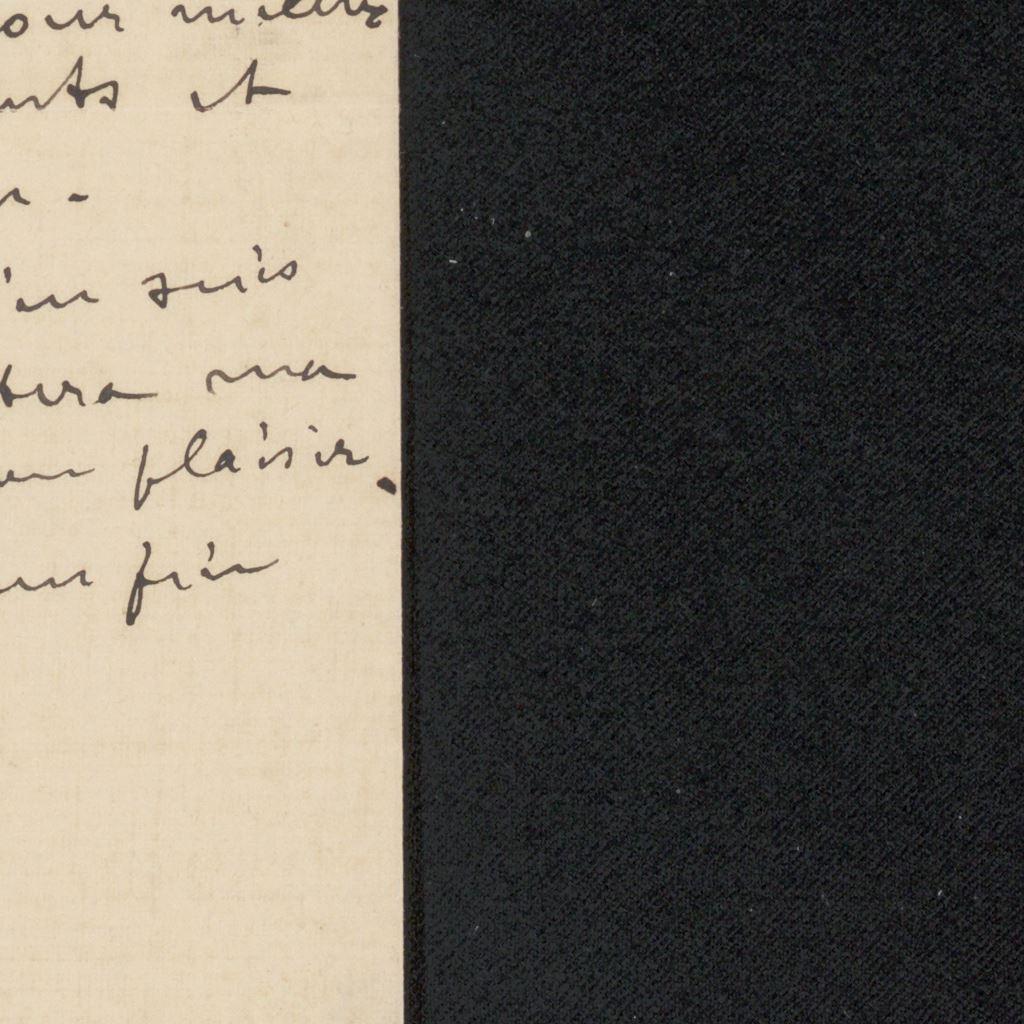 our mieux
nts et
r.
'en suis
tera ma
un plaisir.
un fin